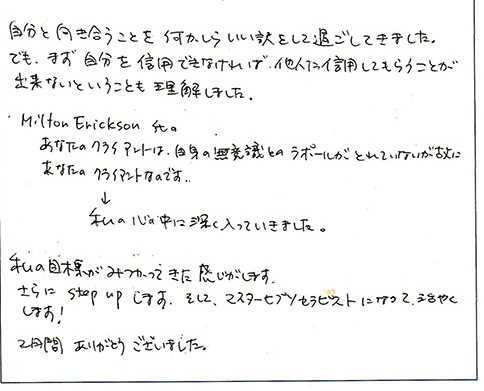 自分と向き合うことを何かしらいい訳をして過ごしてきました。
でも、まず自分を信用できなければ、他人に信用してもらうことが
出来ないということも理解しました。
・Milton Erickson氏の
あなたのクライアントは、自身の無意識とのラポールがとれていないが故に
あなたのクライアントなのです。
↓
私の心の中に深く入っていきました。
私の目標がみつかってきた感じがします。
さらに step up します。そして、マスターセラピストになって、
します!
2日間 ありがとうございました。